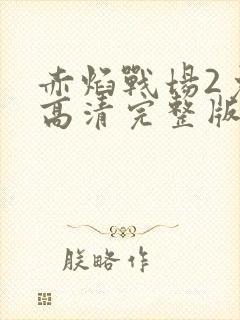 赤焰戰場2
高清完整版
朕略作